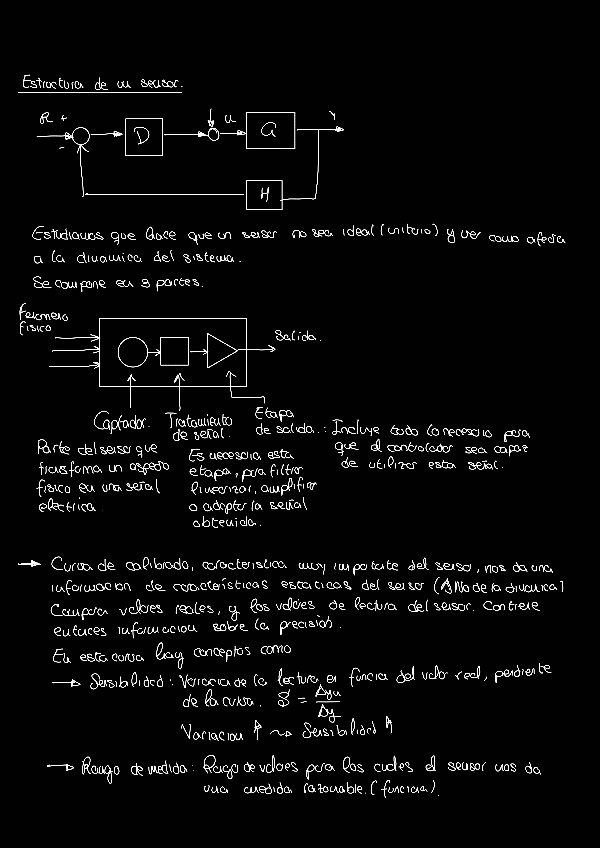 Estructura de un sensor.
R + U Y
D G
-
H
Estudiamos que hace que un sensor no sea ideal (unitario) y ver como afecta
a la dinamica del sistema.
Se compone en 3 partes.
Fenomeno
fisico
Salida.
Captador. Tratamiento de señal. Etapa de salida.: Incluye todo lo necesario para
que el controlador sea capaz
de utilizar esta señal.
Parte del sensor que
transforma un aspecto
fisico en una señal
electrica.
Es necesaria esta
etapa, para filtrar
linearizar, amplificar
o adaptar la señal
obtenida.
→ Curva de calibrado, caracteristica muy importante del sensor, nos da una
informacion de características estaticas del sensor (⚠ No de la dinamica)
Compara valores reales, y los valores de lectura del sensor. Contiene
entonces informacion sobre la precisión.
En esta curva hay conceptos como
→ Sensibilidad: Variacion de la lectura en funcion del valor real, pendiente
de la curva. S = Δym / Δy
Variacion ↑ ⇝ Sensibilidad ↑
→ Rango de medida: Rango de valores para los cuales el sensor nos da
una medida razonable. (funciona).